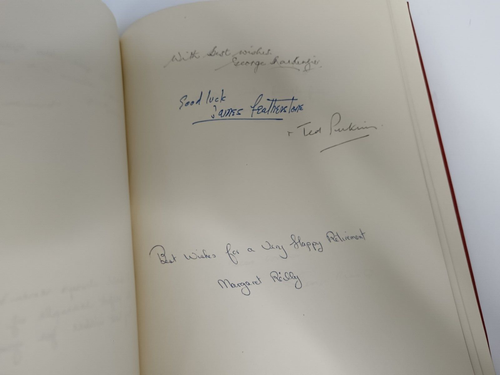 With best wishes
George
Good luck
James Featherstone
Ted Perkins
Best Wishes for a Very Happy Retirement
Margaret Reilly